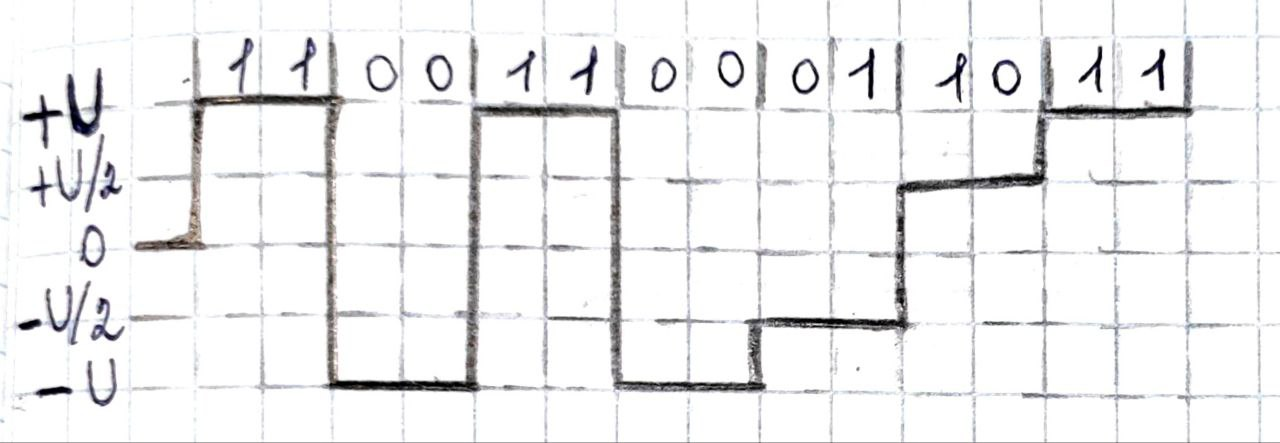 1 1 0 0 1 1 0 0 0 1 1 0 1 1
+U
+U/2
0
-U/2
-U